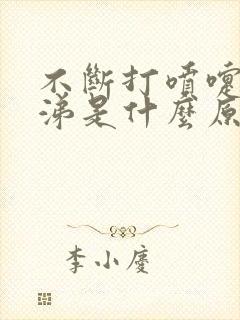 不斷打噴嚏
涕是什麼原
李小慶